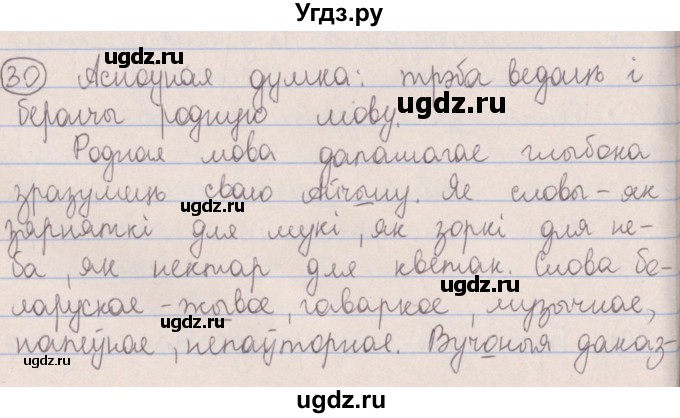 Угдз.ру
30 Асноўная думка: трэба ведаць і
берагчы родную мову.
Родная мова дапамагае глыбока
зразумець сваю Айчыну. Яе словы – як
зярняткі для мукі, як зоркі для не-
ба, як нектар для кветак. Слова бе-
ларускае – жывое, гаваркое, музычнае,
напеўнае, непаўторнае. Вучоныя даказ-
ugdz.ru
ugdz.ru
ugdz.ru
ugdz.ru
ugdz.ru
ugdz.ru
ugdz.ru
ugdz.ru